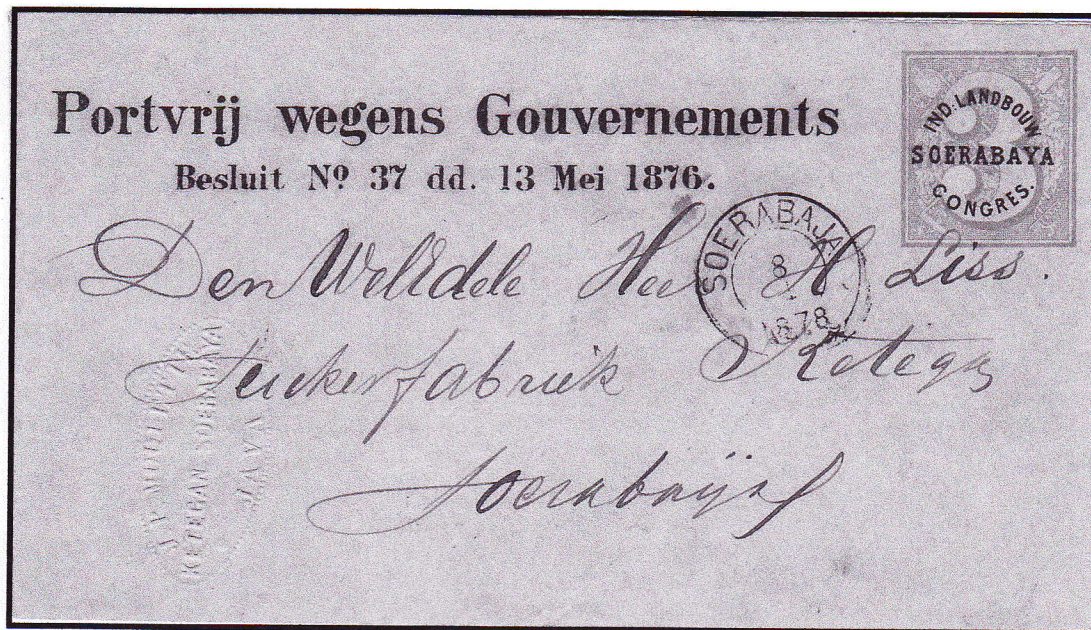 Portvrij wegens Gouvernements
Besluit Nº 37 dd. 13 Mei 1876.
IND. LANDBOUW
SOERABAYA
CONGRES.
SOERABAJA
8
1878
Den WelEdele Heer H. Liss.
Suikerfabriek Ketegan
Soerabaija
KETEGAN SOERABAYA
JAVA